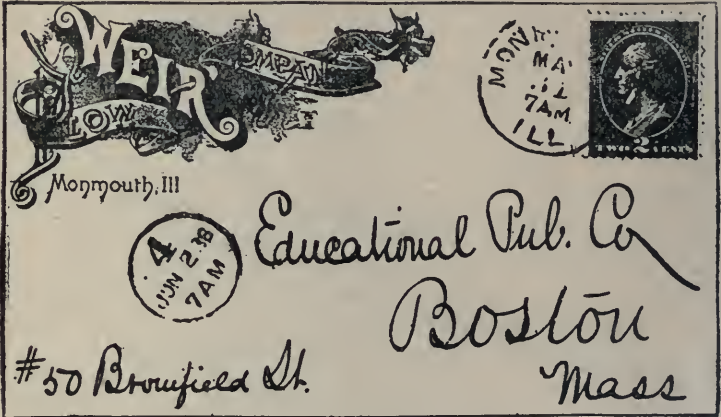 WEIR
PLOW
COMPANY
Monmouth, Ill
MA
7AM
ILL
TWO 2 CENTS
4
JUN 2
7AM
Educational Pub. Co
Boston
Mass
#50 Bromfield St.